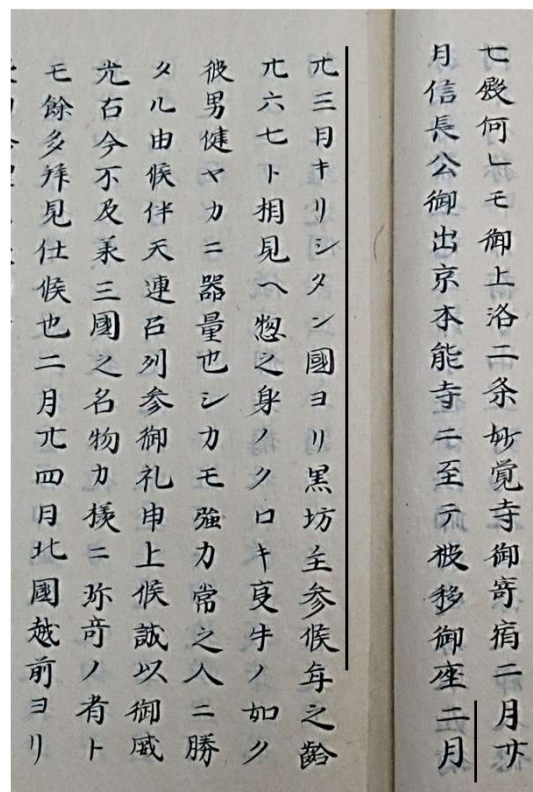 七殿何レモ御上洛二条妙覚寺御寄宿二月廿
月信長公御出京本能寺ニ至テ被移御座二月
廿三日キリシタン國ヨリ黒坊主参候年之齢
廿六七ト相見ヘ惣之身ノクロキ叓牛ノ如ク
彼男健ヤカニ器量也シカモ強力常之人ニ勝
タル由候伴天連召列参御礼申上候誠以御威
光古今不及承三國之名物カ様ニ珎奇ノ者ト
モ餘多拝見仕候也二月廿四日北國越前ヨリ